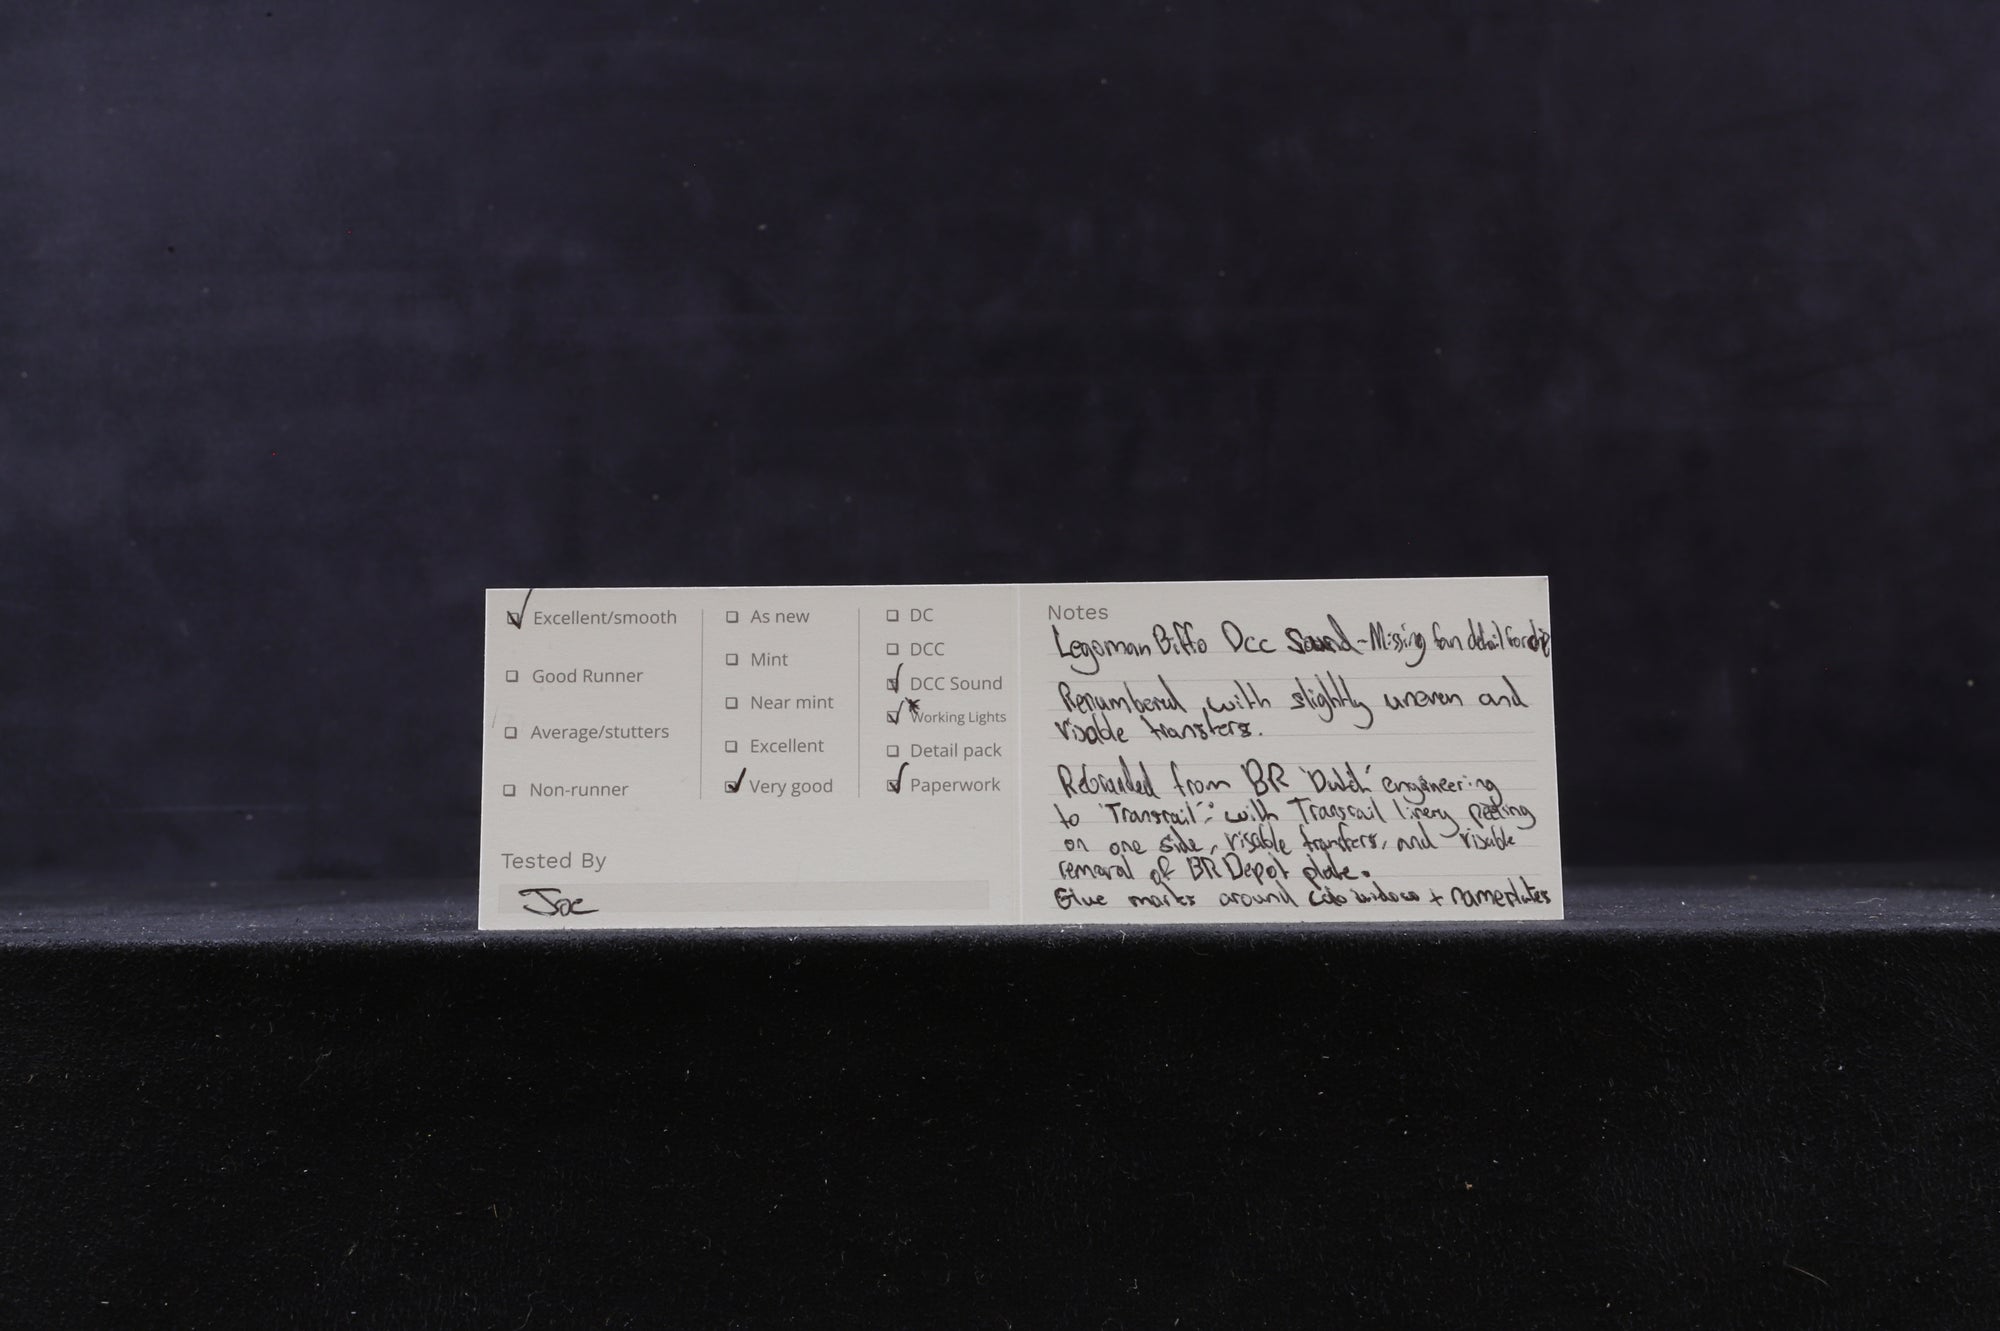 Excellent/smooth
Good Runner
Average/stutters
Non-runner
As new
Mint
Near mint
Excellent
Very good
DC
DCC
DCC Sound
Working Lights
Detail pack
Paperwork
Tested By
Joe
Notes
Legoman Biffo Dcc Sound - Missing fan detail for chip
Renumbered, with slightly uneven and
visable transfers.
Rebranded from BR 'Dutch' engineering
to 'Transrail' with Transrail livery peeling
on one side, visable transfers, and visable
removal of BR Depot plate.
Glue marks around cab windows + nameplates